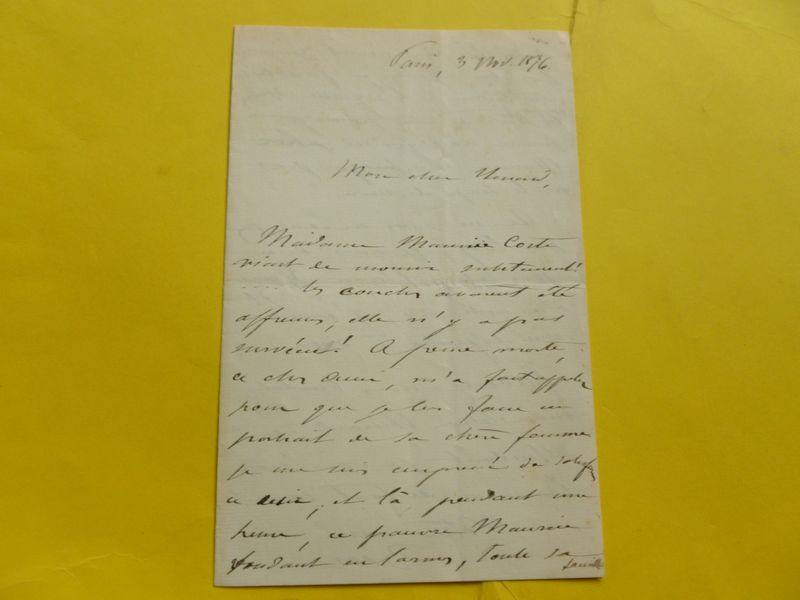 Paris, 3 Nov. 1876.
Mon cher
Madame Maurice Cotte
vient de mourir subitement!
.... les couches avaient été
affreuses, elle n'y a pas
survécut! A peine morte,
ce cher ami, m'a fait appeler
pour que je lui fasse un
portrait de sa chère femme
je me suis empressé de satisfaire
ce désir, et là, pendant une
heure, ce pauvre Maurice
fondant en larmes, toute sa
famille